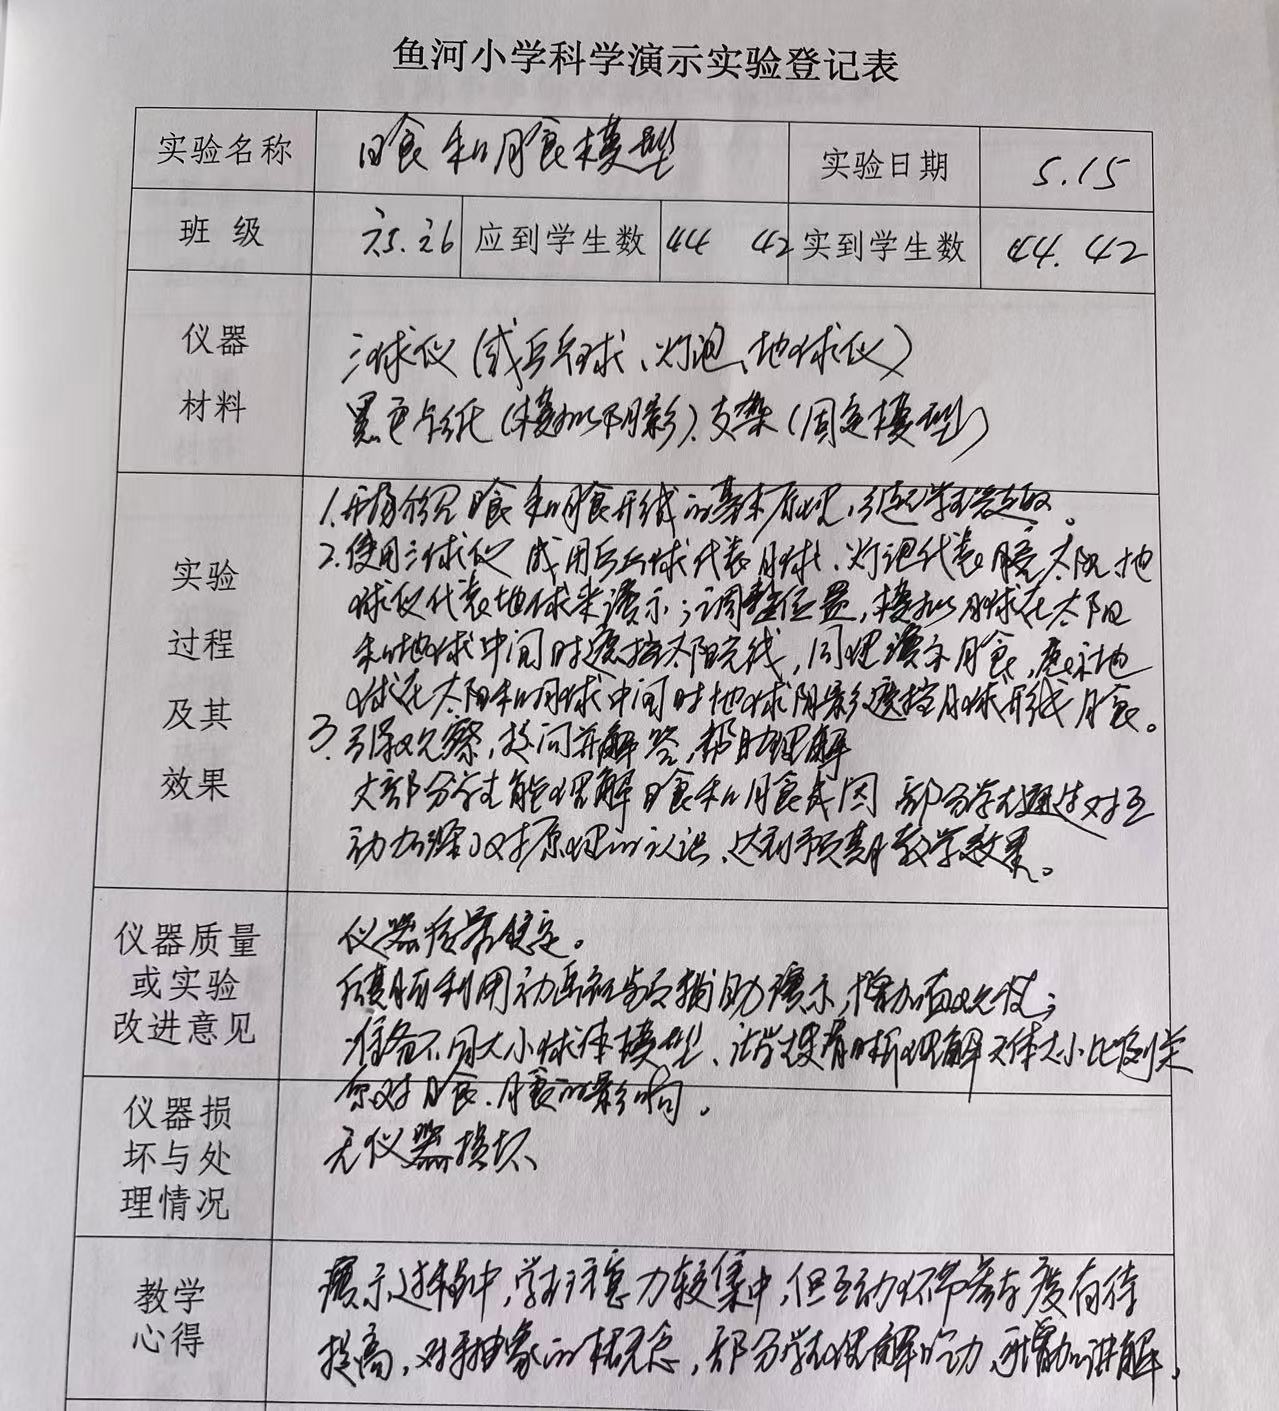 鱼河小学科学演示实验登记表
实验名称 日食和月食模型 实验日期 5.15
班级 六5.六6 应到学生数 44 42 实到学生数 44.42
仪器材料 三球仪(或乒乓球、灯泡、地球仪)
黑色卡纸(模拟阴影)、支架(固定模型)
实验过程及其效果 1.开场介绍日食和月食形成的基本原理,引起学生兴趣。
2.使用三球仪或用乒乓球代表月球、灯泡代表太阳 地
球仪代表地球来演示;调整位置,模拟月球在太阳
和地球中间时遮挡太阳光线,同理演示月食,展示地
球在太阳和月球中间时地球阴影遮挡月球形成月食。
3.引导观察,提问并解答,帮助理解
大部分学生能理解日食和月食成因 部分学生通过对互
动加深了对原理的认识、达到预期教学效果。
仪器质量或实验改进意见 仪器质量稳定。
后续可利用动画视频辅助演示,增加直观性;
准备不同大小球体模型、让学生更清晰理解天体大小比例关
系对日食、月食的影响。
仪器损坏与处理情况 无仪器损坏、
教学心得 演示过程中,学生注意力较集中,但互动环节参与度有待
提高,对于抽象的概念,部分学生理解吃力,可增加讲解,